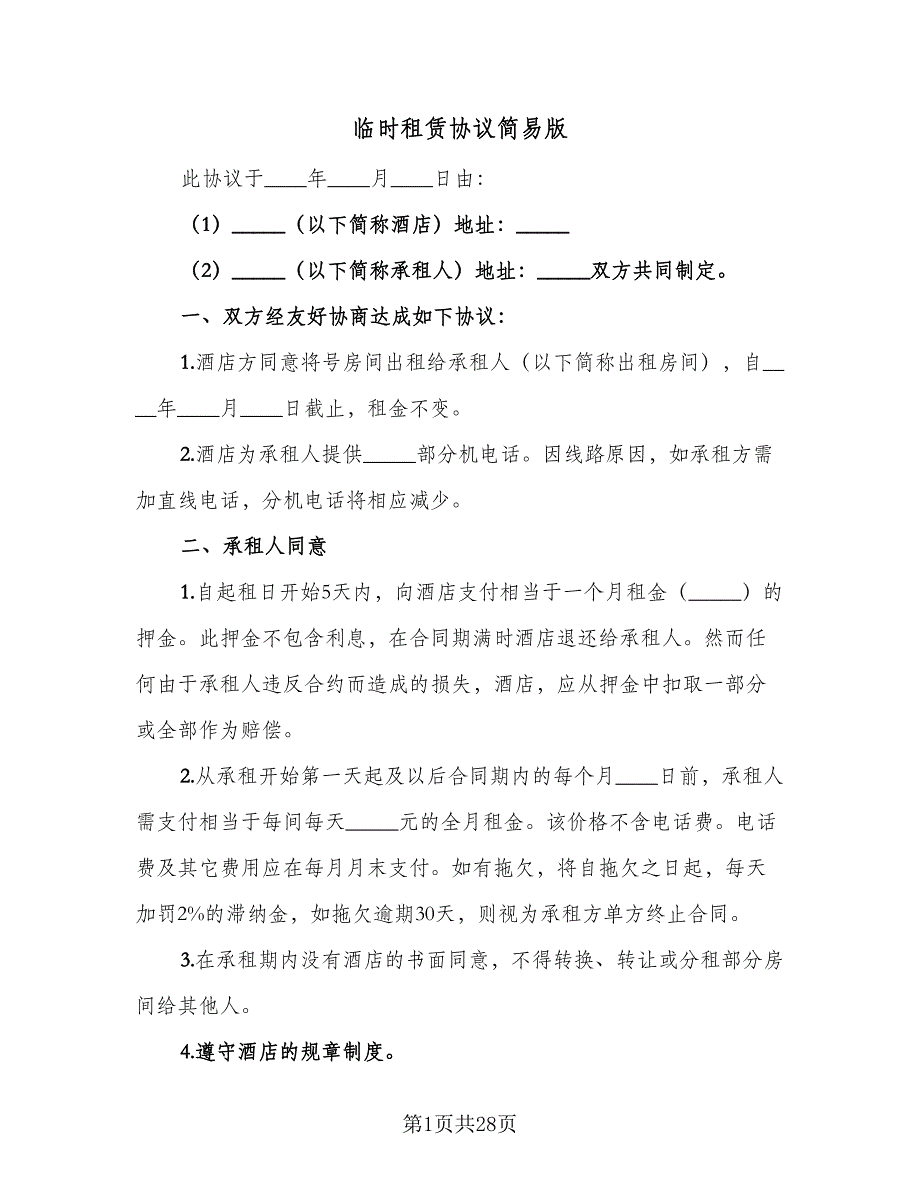 临时租赁协议简易版
此协议于____年____月____日由：
（1）_____（以下简称酒店）地址：_____
（2）_____（以下简称承租人）地址：_____双方共同制定。
一、双方经友好协商达成如下协议：
1.酒店方同意将号房间出租给承租人（以下简称出租房间），自__
__年____月____日截止，租金不变。
2.酒店为承租人提供_____部分机电话。因线路原因，如承租方需
加直线电话，分机电话将相应减少。
二、承租人同意
1.自起租日开始5天内，向酒店支付相当于一个月租金（_____）的
押金。此押金不包含利息，在合同期满时酒店退还给承租人。然而任
何由于承租人违反合约而造成的损失，酒店，应从押金中扣取一部分
或全部作为赔偿。
2.从承租开始第一天起及以后合同期内的每个月____日前，承租人
需支付相当于每间每天_____元的全月租金。该价格不含电话费。电话
费及其它费用应在每月月末支付。如有拖欠，将自拖欠之日起，每天
加罚2%的滞纳金，如拖欠逾期30天，则视为承租方单方终止合同。
3.在承租期内没有酒店的书面同意，不得转换、转让或分租部分房
间给其他人。
4.遵守酒店的规章制度。
第1页共28页